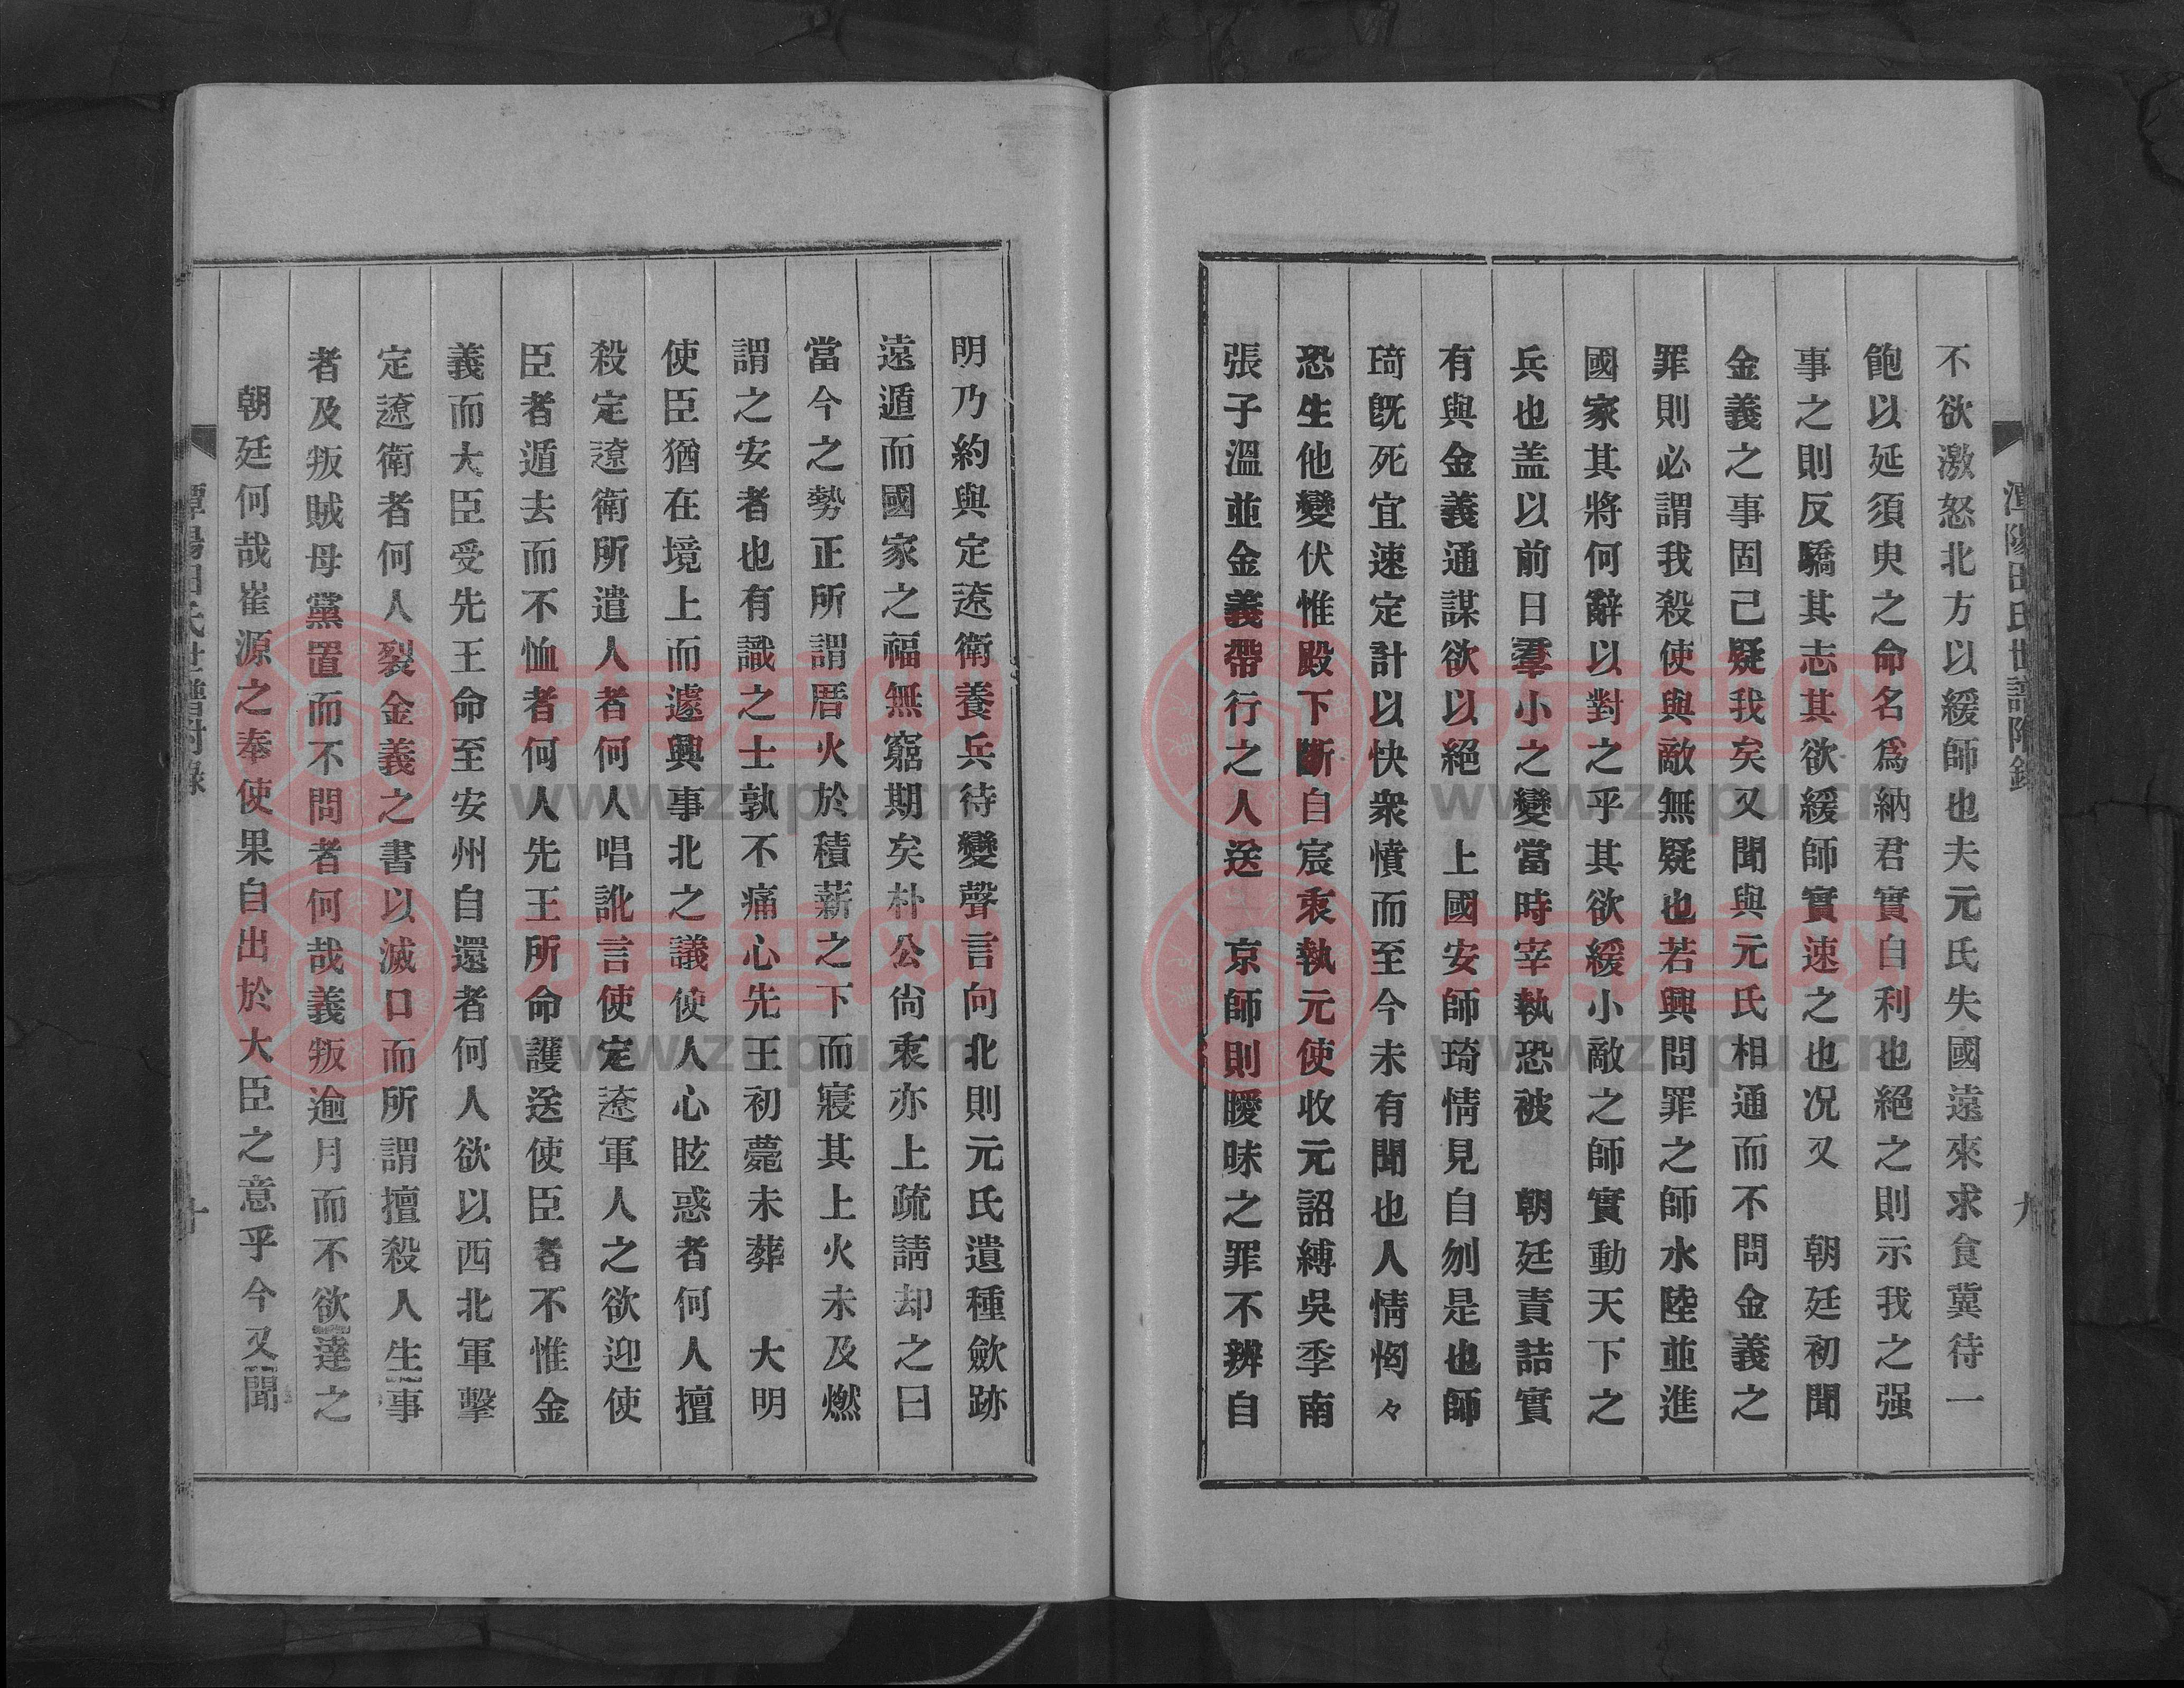 潭陽田氏世譜附錄
九
不欲激怒北方以緩師也夫元氏失國遠來求食冀待一
飽以延須臾之命名爲納君實自利也絕之則示我之强
事之則反驕其志其欲緩師實速之也况又 朝廷初聞
金義之事固己疑我矣又聞與元氏相通而不問金義之
罪則必謂我殺使與敵無疑也若興問罪之師水陸並進
國家其將何辭以對之乎其欲緩小敵之師實動天下之
兵也盖以前日羣小之變當時宰執恐被 朝廷責詰實
有與金義通謀欲以絕 上國安師琦情見自刎是也師
琦旣死宜速定計以快衆憤而至今未有聞也人情恟々
恐生他變伏惟殿下斷自宸衷執元使收元詔縛吳季南
張子溫並金義帶行之人送 京師則曖昧之罪不辨自
明乃約與定遼衛養兵待變聲言向北則元氏遺種歛跡
遠遁而國家之福無窮期矣朴公尙衷亦上疏請却之曰
當今之勢正所謂厝火於積薪之下而寢其上火未及燃
謂之安者也有識之士孰不痛心先王初薨未葬 大明
使臣猶在境上而遽興事北之議使人心眩惑者何人擅
殺定遼衛所遣人者何人唱訛言使定遼軍人之欲迎使
臣者遁去而不恤者何人先王所命護送使臣者不惟金
義而大臣受先王命至安州自還者何人欲以西北軍擊
定遼衛者何人裂金義之書以滅口而所謂擅殺人生事
者及叛賊母黨置而不問者何哉義叛逾月而不欲達之
朝廷何哉崔源之奉使果自出於大臣之意乎今又聞
潭陽田氏世譜附錄
十